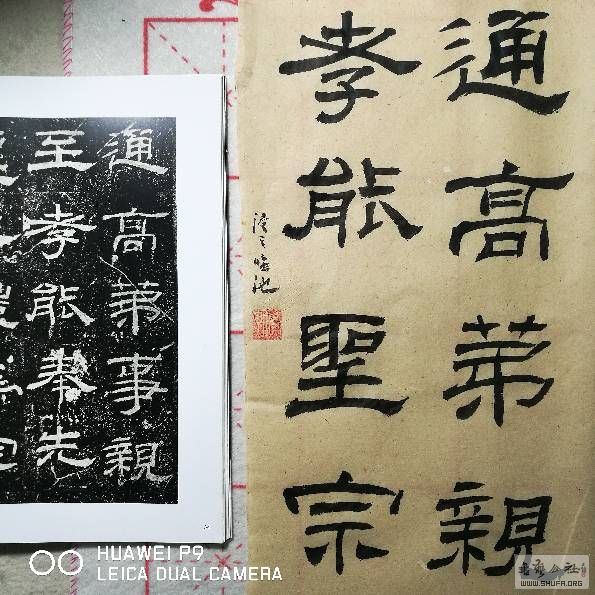 通高苐事親
至孝能奉先
通高苐親
孝能聖宗
臨池
HUAWEI P9
LEICA DUAL CAMERA
WWW.SHUFA.ORG